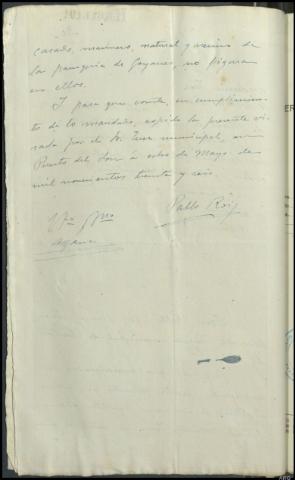 casado, marinero, natural y vecino de
la parroquia de Goyanes, no figuran
en ellos.
Y para que conste, en cumplimien-
to de lo mandado, expido la presente vi-
sada por el Sr. Juez municipal, en
Puerto del Son a ocho de Mayo de
mil novecientos treinta y seis.
Vº Bº
Pablo Roig